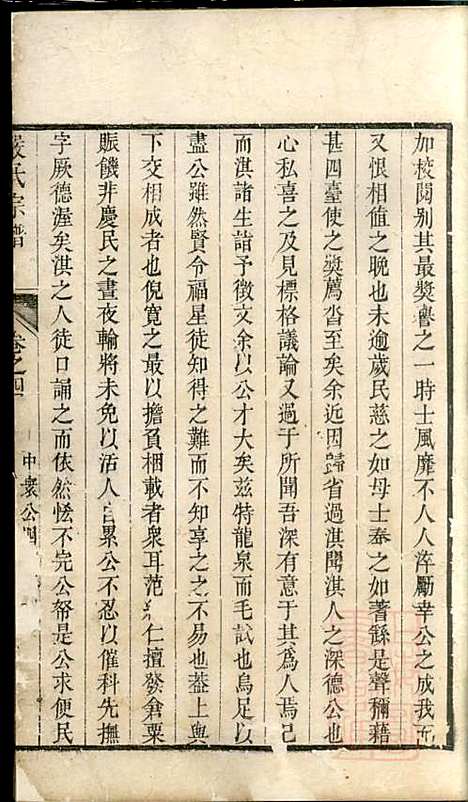 加校閱別其最獎譽之一時士風靡不人人淬勵幸公之成我而
又恨相值之晚也未逾歲民慈之如母士奉之如蓍繇是聲稱藉
甚四臺使之獎薦沓至矣余近因歸省過淇聞淇人之深德公也
心私喜之及見標格議論又過于所聞吾深有意于其為人焉已
而淇諸生詣予徵文余以公才大矣茲特龍泉而毛試也烏足以
盡公雖然賢令福星徒知得之難而不知享之之不易也葢上與
下交相成者也倪寬之最以擔負梱載者衆耳范 仁擅發倉粟
賑饑非慶民之晝夜輸將未免以活人 累公不忍以催科先撫
字厥德渥矣淇之人徒口誦之而依然恡不完公帑是公求便民
嚴氏宗譜 卷之四 中衷公四